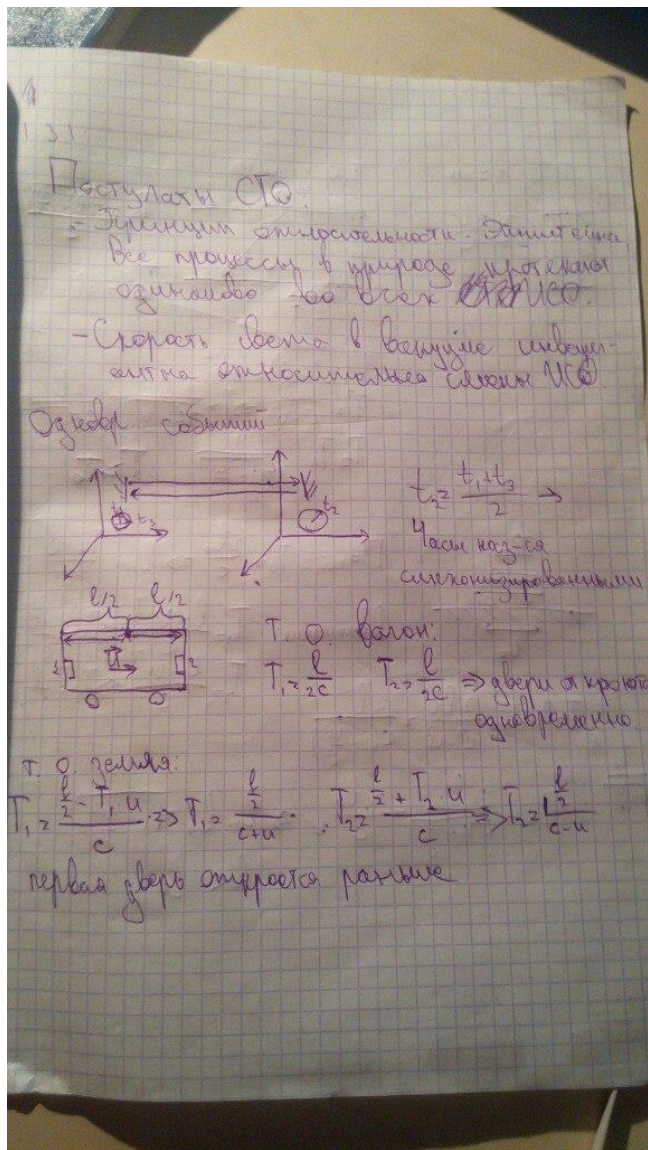 1 3 1
Постулаты СТО.
- Принцип относительности Эйнштейна
Все процессы в природе протекают
одинаково во всех ИСО.
- Скорость света в вакууме инвари-
антна относительно смены ИСО.
Одновр. событий
t₂ = (t₁+t₃)/2 →
t₃ t₂
Часы наз-ся
синхронизированными
l/2 l/2
Т. О. вагон:
1 u 2
T₁ = l/2c T₂ = l/2c ⇒ двери откроются
одновременно.
Т. О. земля:
T₁ = (l/2 - T₁ u)/c ⇒ T₁ = (l/2)/(c+u) . T₂ = (l/2 + T₂ u)/c ⇒ T₂ = (l/2)/(c-u)
первая дверь откроется раньше